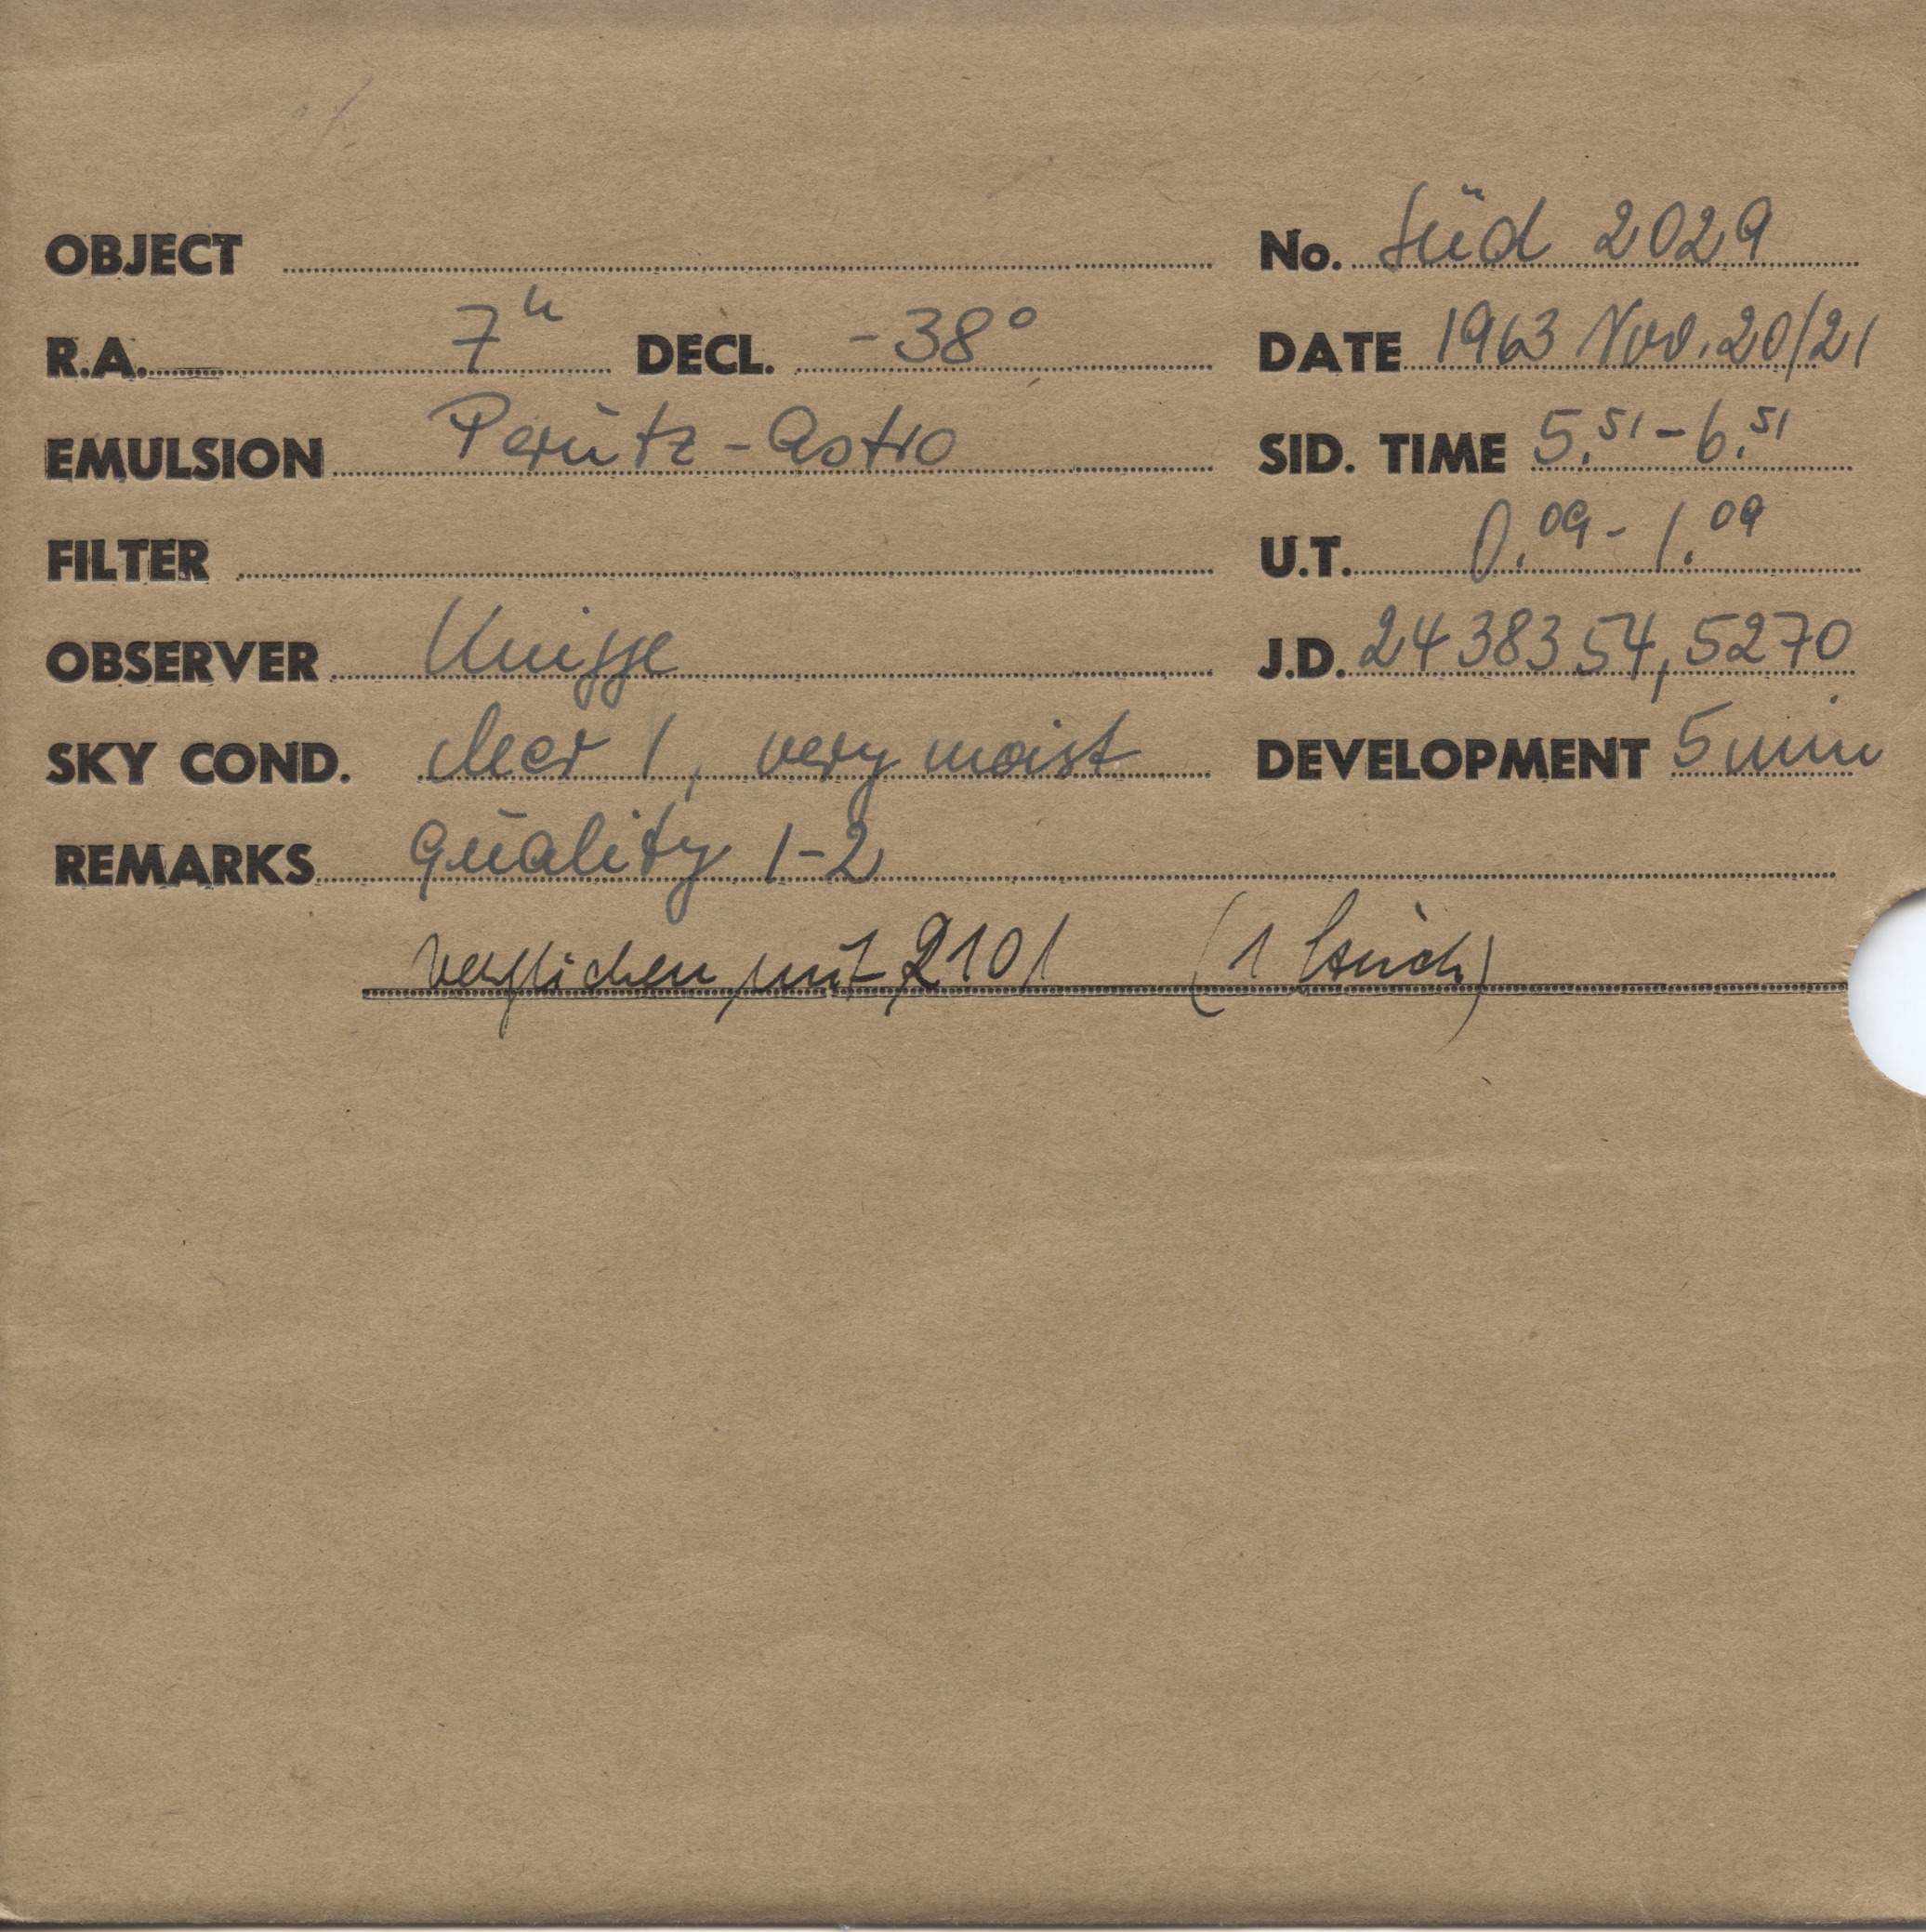 OBJECT No. Süd 2029
R.A. 7h DECL. -38° DATE 1963 Nov. 20/21
EMULSION Perutz-Astro SID. TIME 5.51-6.51
FILTER U.T. 0.09-1.09
OBSERVER Knigge J.D. 2438354,5270
SKY COND. clear 1, very moist DEVELOPMENT 5 min
REMARKS Quality 1-2
verglichen mit 2101 (1 Stück)